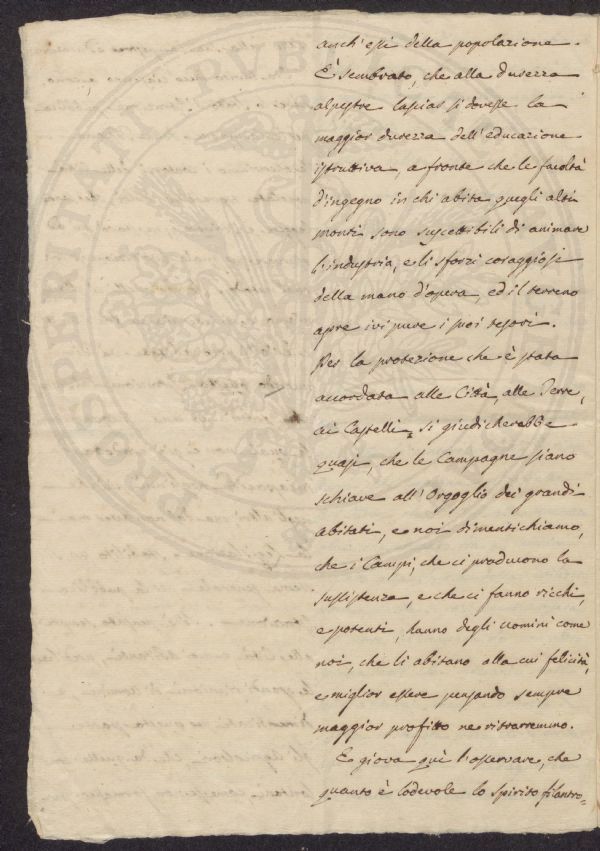 anch'essi della popolazione.
È sembrato, che alla durezza
alpestre lasciar si dovesse la
maggior durezza dell'educazione
istruttiva, a fronte che le facoltà
d'ingegno in chi abita quegli alti
monti sono suscettibili di animare
l'industria, e li sforzi coraggiosi
della mano d'opera, ed il terreno
apre ivi pure i suoi tesori.
Per la protezione che è stata
accordata alle Città, alle Terre,
ai Castelli, si giudicherebbe
quasi, che le Campagne siano
schiave all'Orgoglio dei grandi
abitati, e noi dimentichiamo,
che i Campi, che ci producono la
sussistenza, e che ci fanno ricchi,
e potenti, hanno degli uomini come
noi, che li abitano alla cui felicità,
e miglior essere pensando sempre
maggior profitto ne ritrarremmo.
E giova quì l'osservare, che
quanto è lodevole lo spirito filantro=